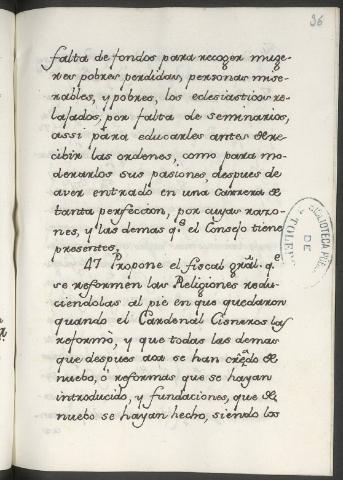 36
falta de fondos para recoger muge-
res pobres perdidas, personas mise-
rables, y pobres, los eclesiasticos re-
lajados, por falta de seminarios,
assi para educarles antes de re-
cibir las ordenes, como para mo-
derarlos sus pasiones, despues de
aver entrado en una carrera de
tanta perfeccion, por cuyas razo-
nes, y las demas q.e el Consejo tiene
presentes.
47 Propone el fiscal gràl. q.e
se reformen las Religiones redu-
ciendolas al pie en que quedaron
quando el Cardenal Cisneros las
reformò, y que todas las demas
que despues acà se han creado de
nuebo, ò reformas que se hayan
introducido, y fundaciones, que de
nuebo se hayan hecho, siendo los
BIBLIOTECA
DE
TOLE